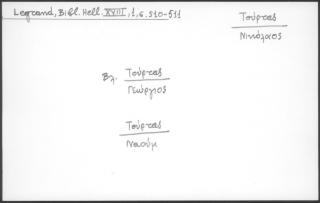 Legrand, Bibl. Hell. XVIII, 1, σ. 510-511
Τούρτας
Νικόλαος
Βλ. Τούρτας
Γεώργιος
Τούρτας
Ναούμ